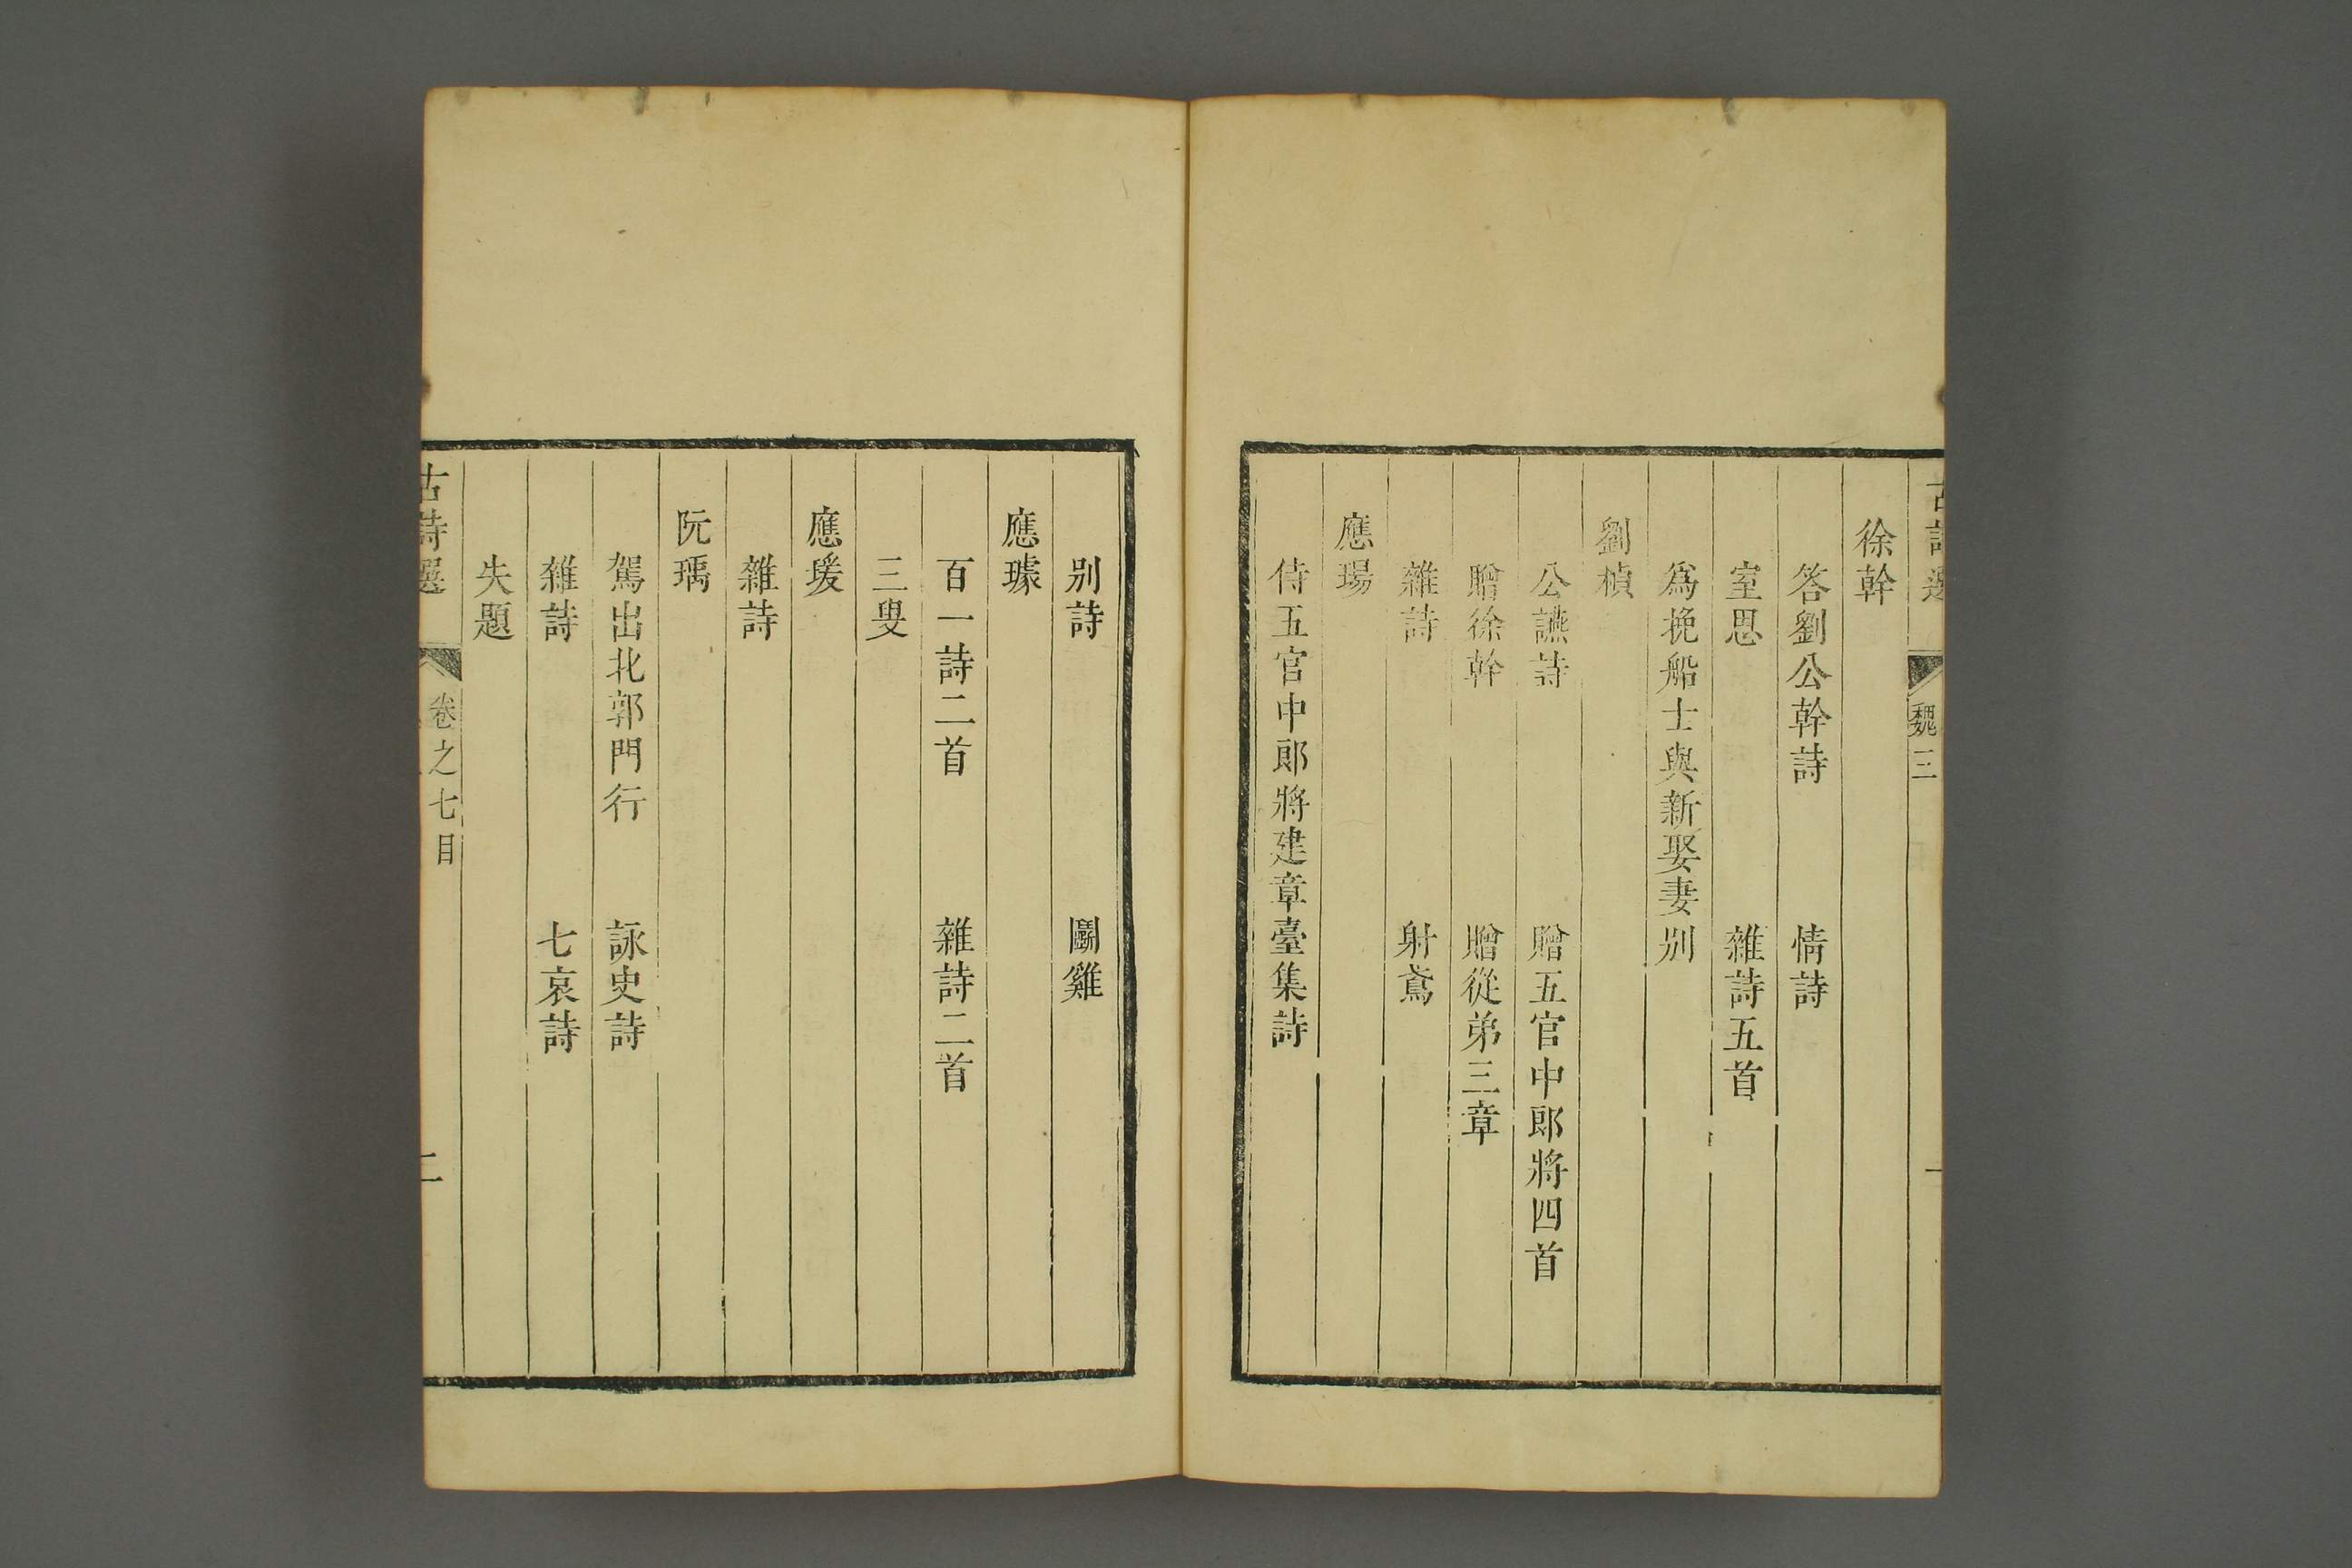 古詩選 魏三 一
徐幹
答劉公幹詩 情詩
室思 雜詩五首
爲挽船士與新娶妻别
劉楨
公讌詩 贈五官中郎將四首
贈徐幹 贈從弟三章
雜詩 射鳶
應瑒
侍五官中郎將建章臺集詩
别詩 鬭雞
應璩
百一詩二首 雜詩二首
三叟
應瑗
雜詩
阮瑀
駕出北郭門行 詠史詩
雜詩 七哀詩
失題
古詩選 卷之七目 二